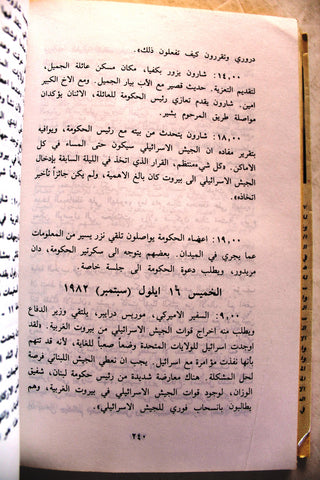 دروري وتقررون كيف تفعلون ذلك».
١٤,٠٠: شارون يزور بكفيا، مكان مسكن عائلة الجميل،
لتقديم التعزية. حديث قصير مع الأب بيار الجميل. ومع الاخ الكبير
امين. شارون يقدم تعازي رئيس الحكومة للعائلة، الاثنان يؤكدان
مواصلة طريق المرحوم بشير.
١٨,٠٠: شارون يتحدث من بيته مع رئيس الحكومة، ويوافيه
بتقرير مفاده ان الجيش الاسرائيلي سيكون حتى المساء في كل
الأماكن. وكل شيء منتظم، القرار الذي اتخذ في الليلة السابقة بإدخال
الجيش الاسرائيلي الى بيروت كان بالغ الاهمية، ولم يكن جائزاً تأخير
ذلك.
١٩,٠٠: اعضاء الحكومة يواصلون تلقي نزر يسير من المعلومات
عما يجري في الميدان. بعضهم يتوجه الى سكرتير الحكومة، دان
مريدور، ويطلب دعوة الحكومة الى جلسة خاصة.
الخميس ١٦ ايلول (سبتمبر) ١٩٨٢
٩,٠٠: السفير الاميركي، موريس درايبر، يلتقي وزير الدفاع
ويطلب منه اخراج قوات الجيش الاسرائيلي من بيروت الغربية. ان
دخولها اوجد للولايات المتحدة وضعاً صعباً للغاية، لأنه قد تتهم
بأنها نفذت مؤامرة مع اسرائيل. يجب ان تعطي الجيش اللبناني فرصة
لحل المشكلة. هناك معارضة شديدة من رئيس حكومة لبنان، شفيق
الوزان، لوجود قوات الجيش الاسرائيلي في بيروت الغربية، وهم
يطالبون بانسحاب فوري للجيش الاسرائيلي».
٢٤٠